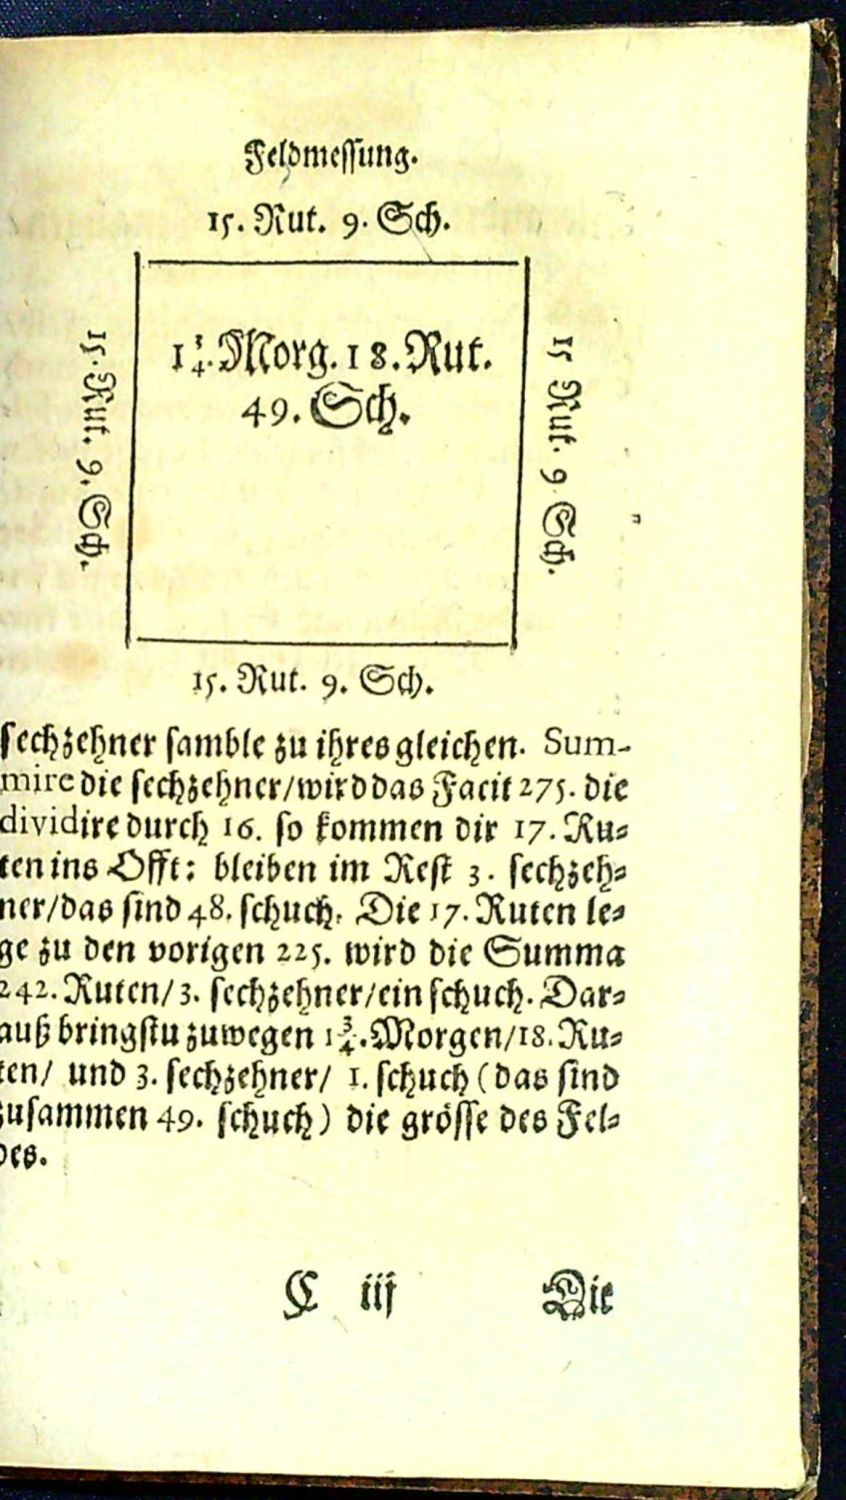 Feldmessung.
15. Rut. 9. Sch.
15. Rut. 9. Sch.
1 3/4. Morg. 18. Rut.
49. Sch.
15 Rut. 9 Sch.
15. Rut. 9. Sch.
sechzehner samble zu ihres gleichen. Sum-
mire die sechzehner/wird das Facit 275. die
dividire durch 16. so kommen dir 17. Ru⸗
ten ins Offt: bleiben im Rest 3. sechzeh⸗
ner/das sind 48. schuch. Die 17. Ruten le⸗
ge zu den vorigen 225. wird die Summa
242. Ruten/3. sechzehner/ein schuch. Dar⸗
auß bringstu zuwegen 1 3/4. Morgen/18. Ru⸗
ten/ und 3. sechzehner/ 1. schuch (das sind
zusammen 49. schuch) die grösse des Fel⸗
des.
C iij Die